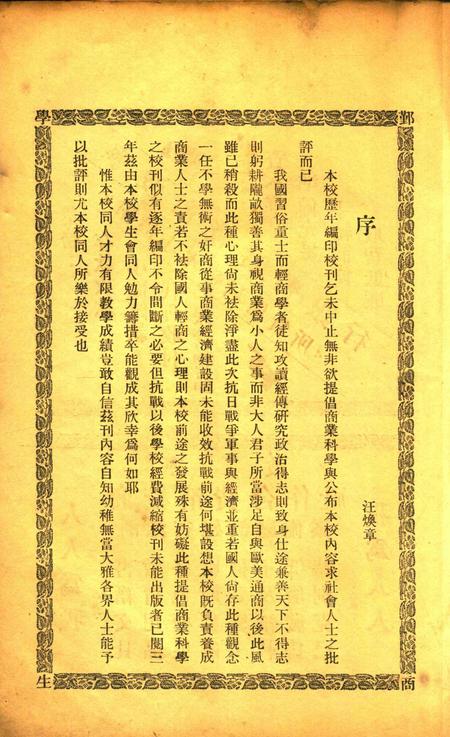 鄞商學生
序
汪煥章
本校歷年編印校刊乞未中止無非欲提倡商業科學與公布本校內容求社會人士之批
評而已
我國習俗重士而輕商學者徒知攻讀經傳研究政治得志則致身仕途兼善天下不得志
則躬耕隴畝獨善其身視商業爲小人之事而非大人君子所當涉足自與歐美通商以後此風
雖已稍殺而此種心理尙未袪除淨盡此次抗日戰爭軍事與經濟並重若國人尙存此種觀念
一任不學無術之奸商從事商業經濟建設固未能收效抗戰前途何堪設想本校旣負責養成
商業人士之責若不袪除國人輕商之心理則本校前途之發展殊有妨礙此種提倡商業科學
之校刊似有逐年編印不令間斷之必要但抗戰以後學校經費減縮校刊未能出版者已閱三
年茲由本校學生會同人勉力籌措卒能觀成其欣幸爲何如耶
惟本校同人才力有限教學成績豈敢自信茲刊內容自知幼稚無當大雅各界人士能予
以批評則尤本校同人所樂於接受也